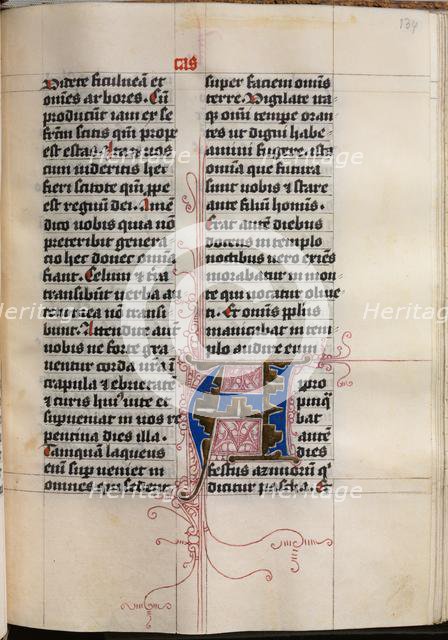 134
cas
Videte ficulneā et
om̄es arbores. Cū
producūt iam ex se
fr̄m scitis qm̄ prope
est estas. Ita et vos
cum videritis hec
fieri scitote qm̄ ꝓpe
est regnū dei. Amē
dico vobis quia nō
preteribit genera
cio hec donec om̄ia
fiant. Celum et t̄ra
transibūt verba au
non transi
bunt. Attendite aūt
vobis ne forte gra
uentur corda vr̄a ī
crapula et ebrietate
et curis huiꝰ vite et
superueniat in vos re
pentina dies illa.
Tamquā laqueus
enī superueniet in
omnes qui sedent
super faciem om̄is
terre. Vigilate ita
qꝫ om̄i tempe oran
tes ut digni habe
amini fugere ista
om̄ia que futura
sunt nobis et stare
ante filiū hom̄is.
Erat autē diebus
docens in templo
noctibus vero exiēs
morabatur in mon
te qui vocatur oliue
ti. Et om̄is pl̄us
manicabat in tem
plo audire eum
A
pro
pinqͣ
bat
autē
dies
festus azimorū qͥ
dicitur pascha. Et
Heritage
Heritage
Heritage
Heritage
Heritage
Heritage
Heritage